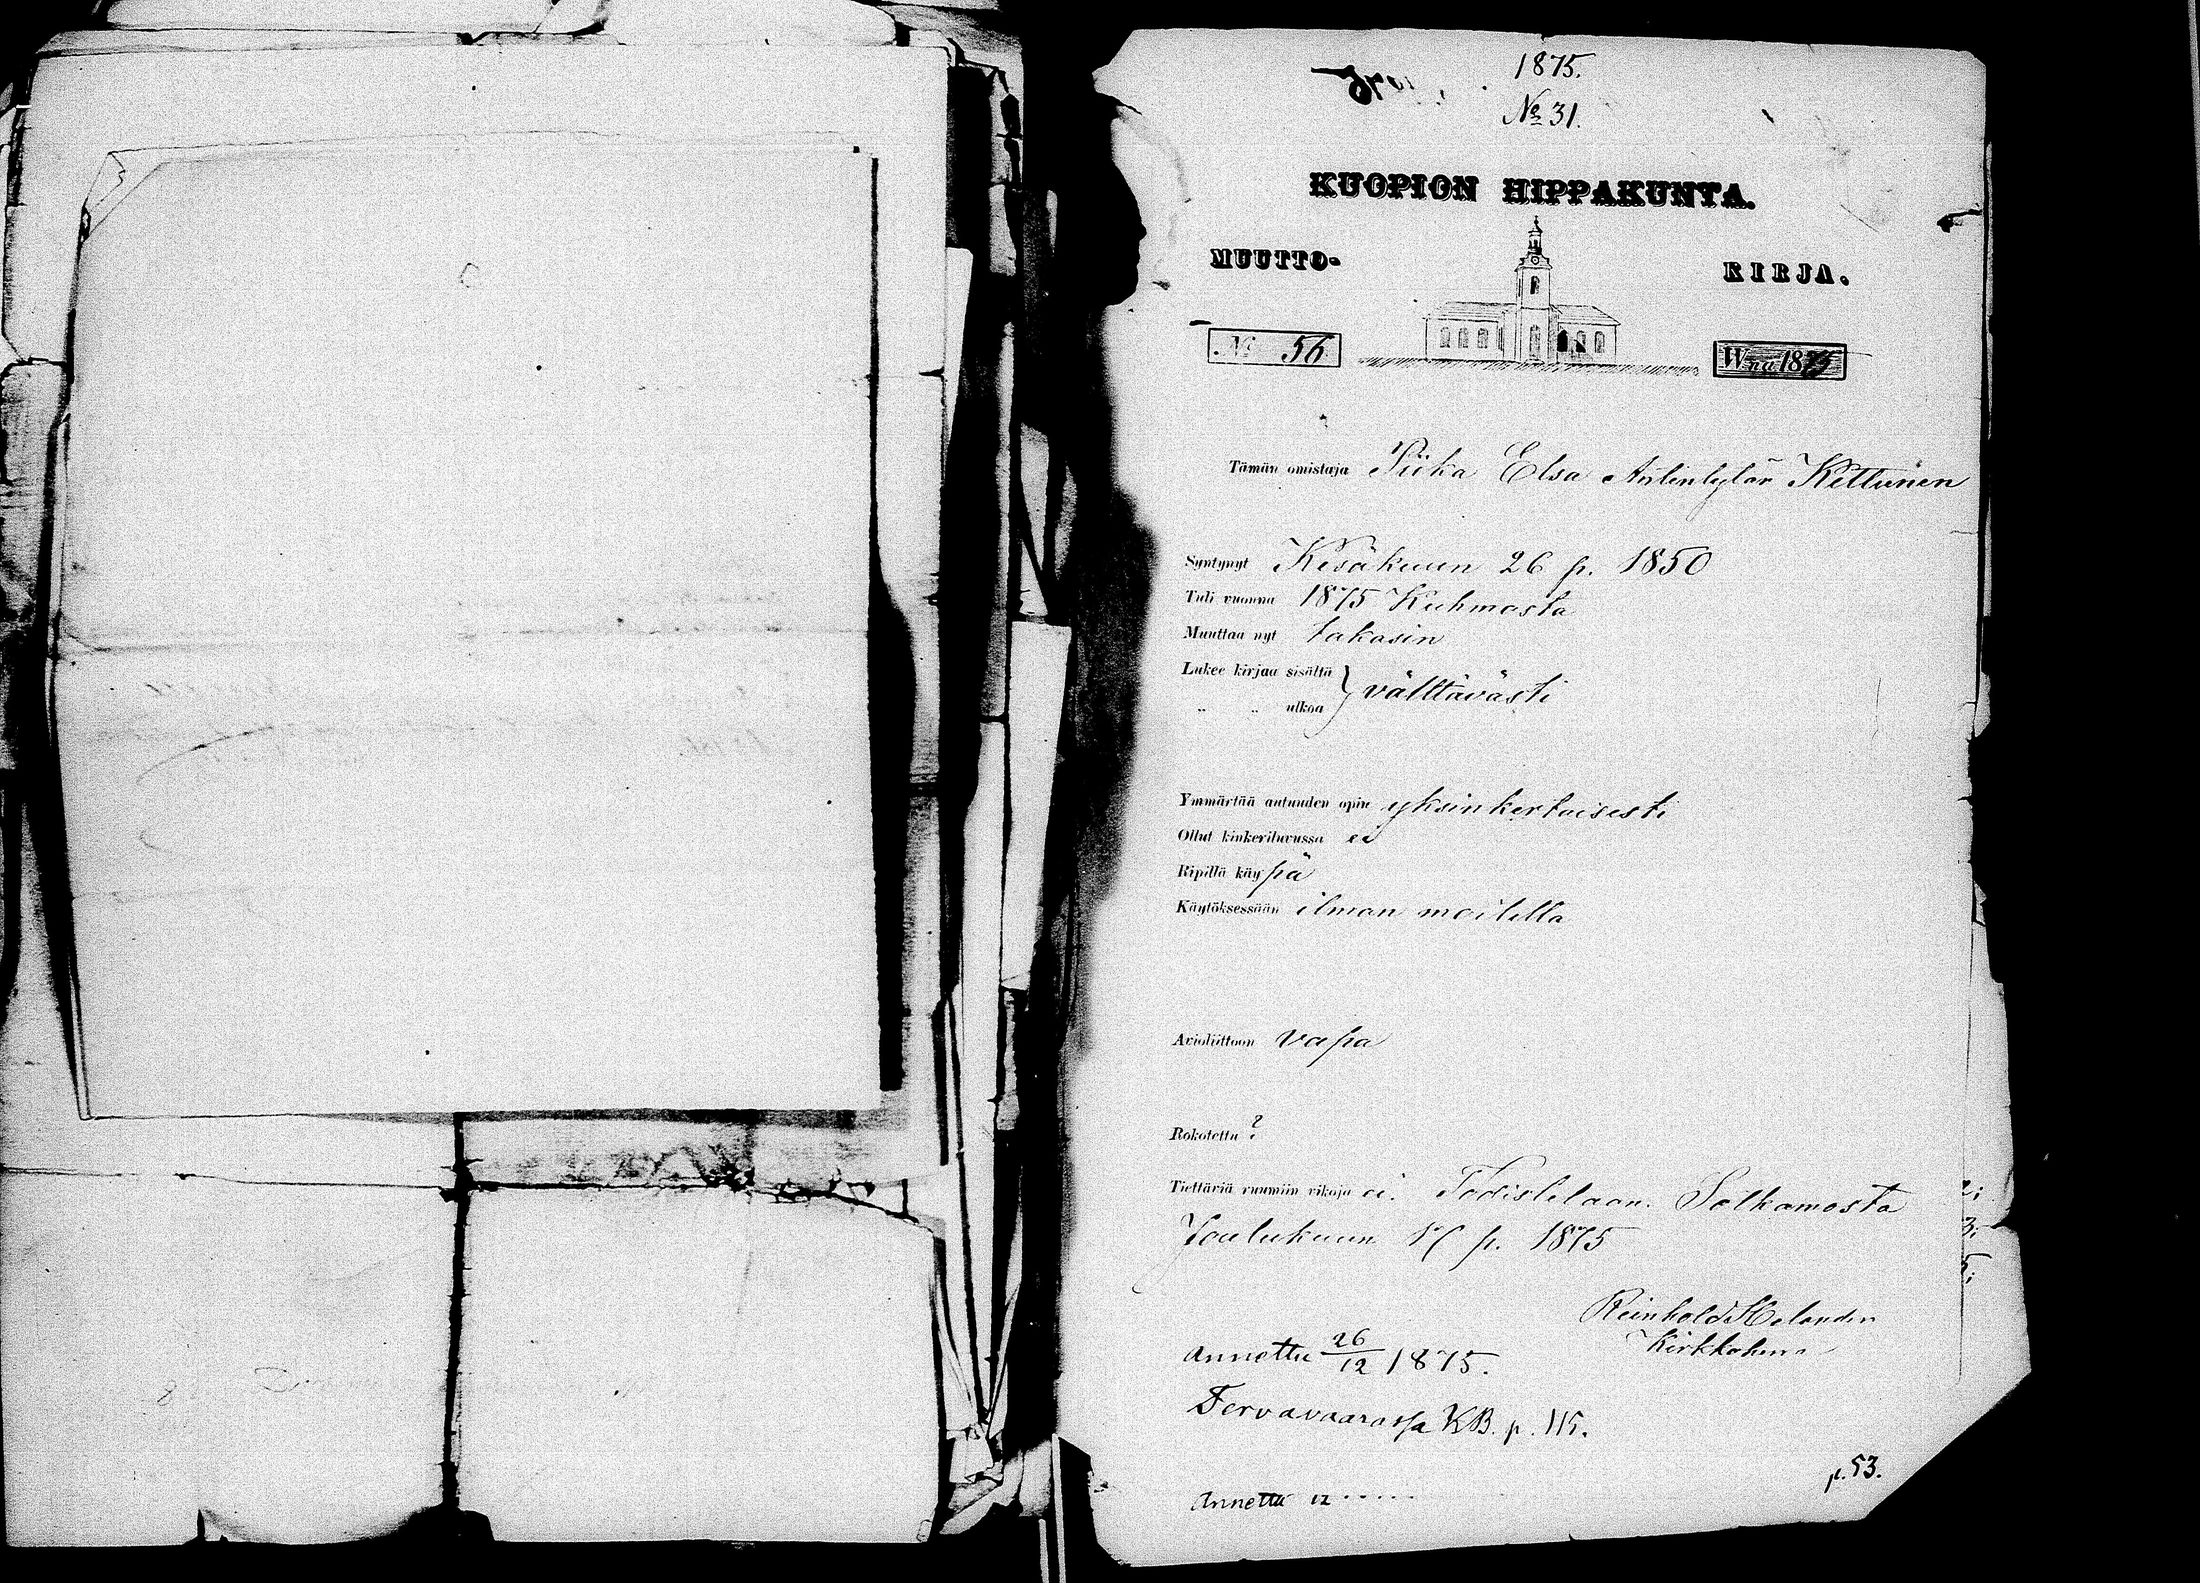 1875.
No 31.
KUOPION HIPPAKUNTA.
MUUTTO- KIRJA.
No 56 W:na 1875
Tämän omistaja Piika Elsa Antintytär Kettunen
Syntynyt Kesäkuun 26 p. 1850
Tuli vuonna 1875 Kuhmosta
Muuttaa nyt takasin
Lukee kirjaa sisältä } välttävästi
" " ulkoa
Ymmärtää autuuden opin yksinkertaisesti
Ollut kinkeriluvussa ei
Ripillä käypä
Käytöksessään ilman moitetta
Avioliittoon vapa
Rokotettu ?
Tiettäviä ruumiin vikoja ei. Todistetaan. Sotkamosta
Joulukuun p. 1875
Reinhold Helander
Annettu 26/12 1875.
Tervavaarassa KB. p. 115.
p. 53.
Annettu 12